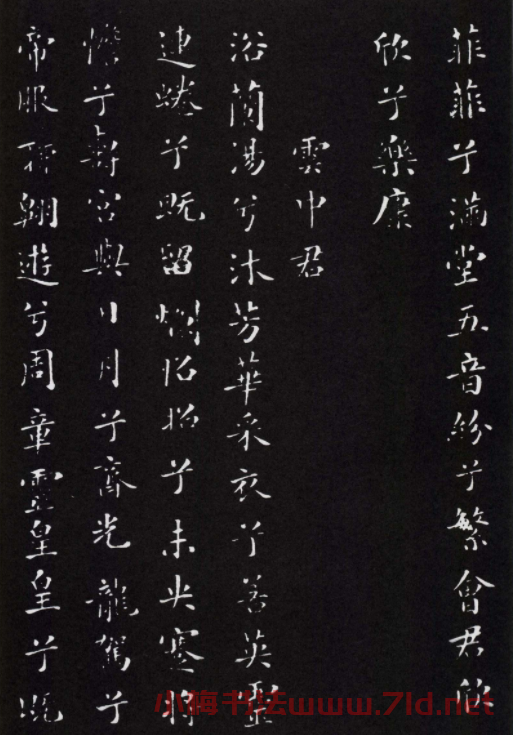 菲菲兮滿堂五音紛兮繁會君欣
欣兮樂康
雲中君
浴蘭湯兮沐芳華采衣兮若英靈
連蜷兮既留爛昭昭兮未央蹇將
憺兮壽宮與日月兮齊光龍駕兮
帝服聊翱遊兮周章靈皇皇兮既
小梅书法www.7ld.net